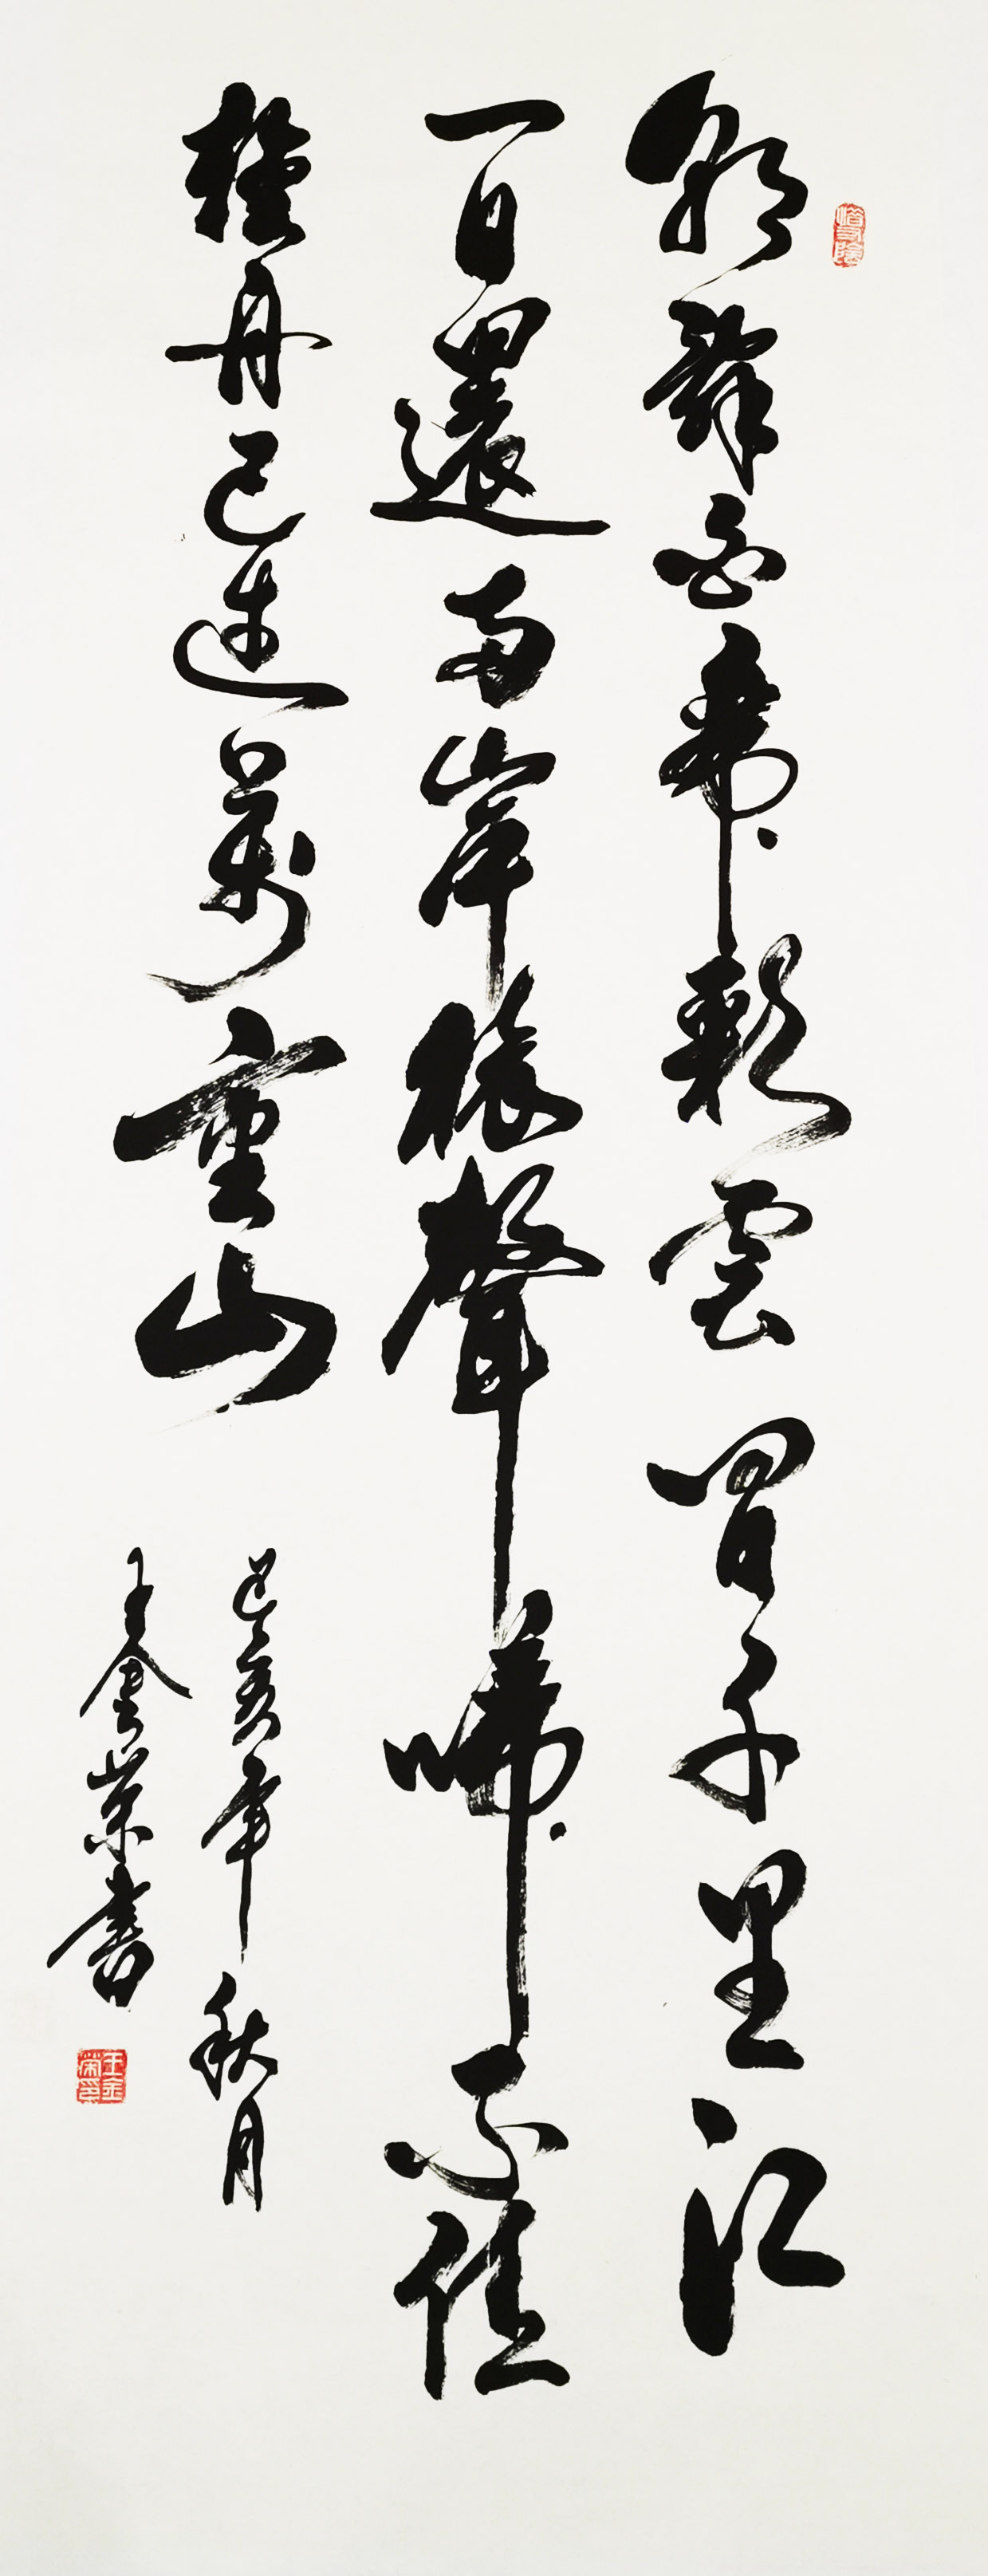 惜寸陰
朝辭白帝彩雲間千里江
一日還兩岸猿聲啼不住
輕舟已過萬重山
己亥年秋月
王金榮書
王金榮印